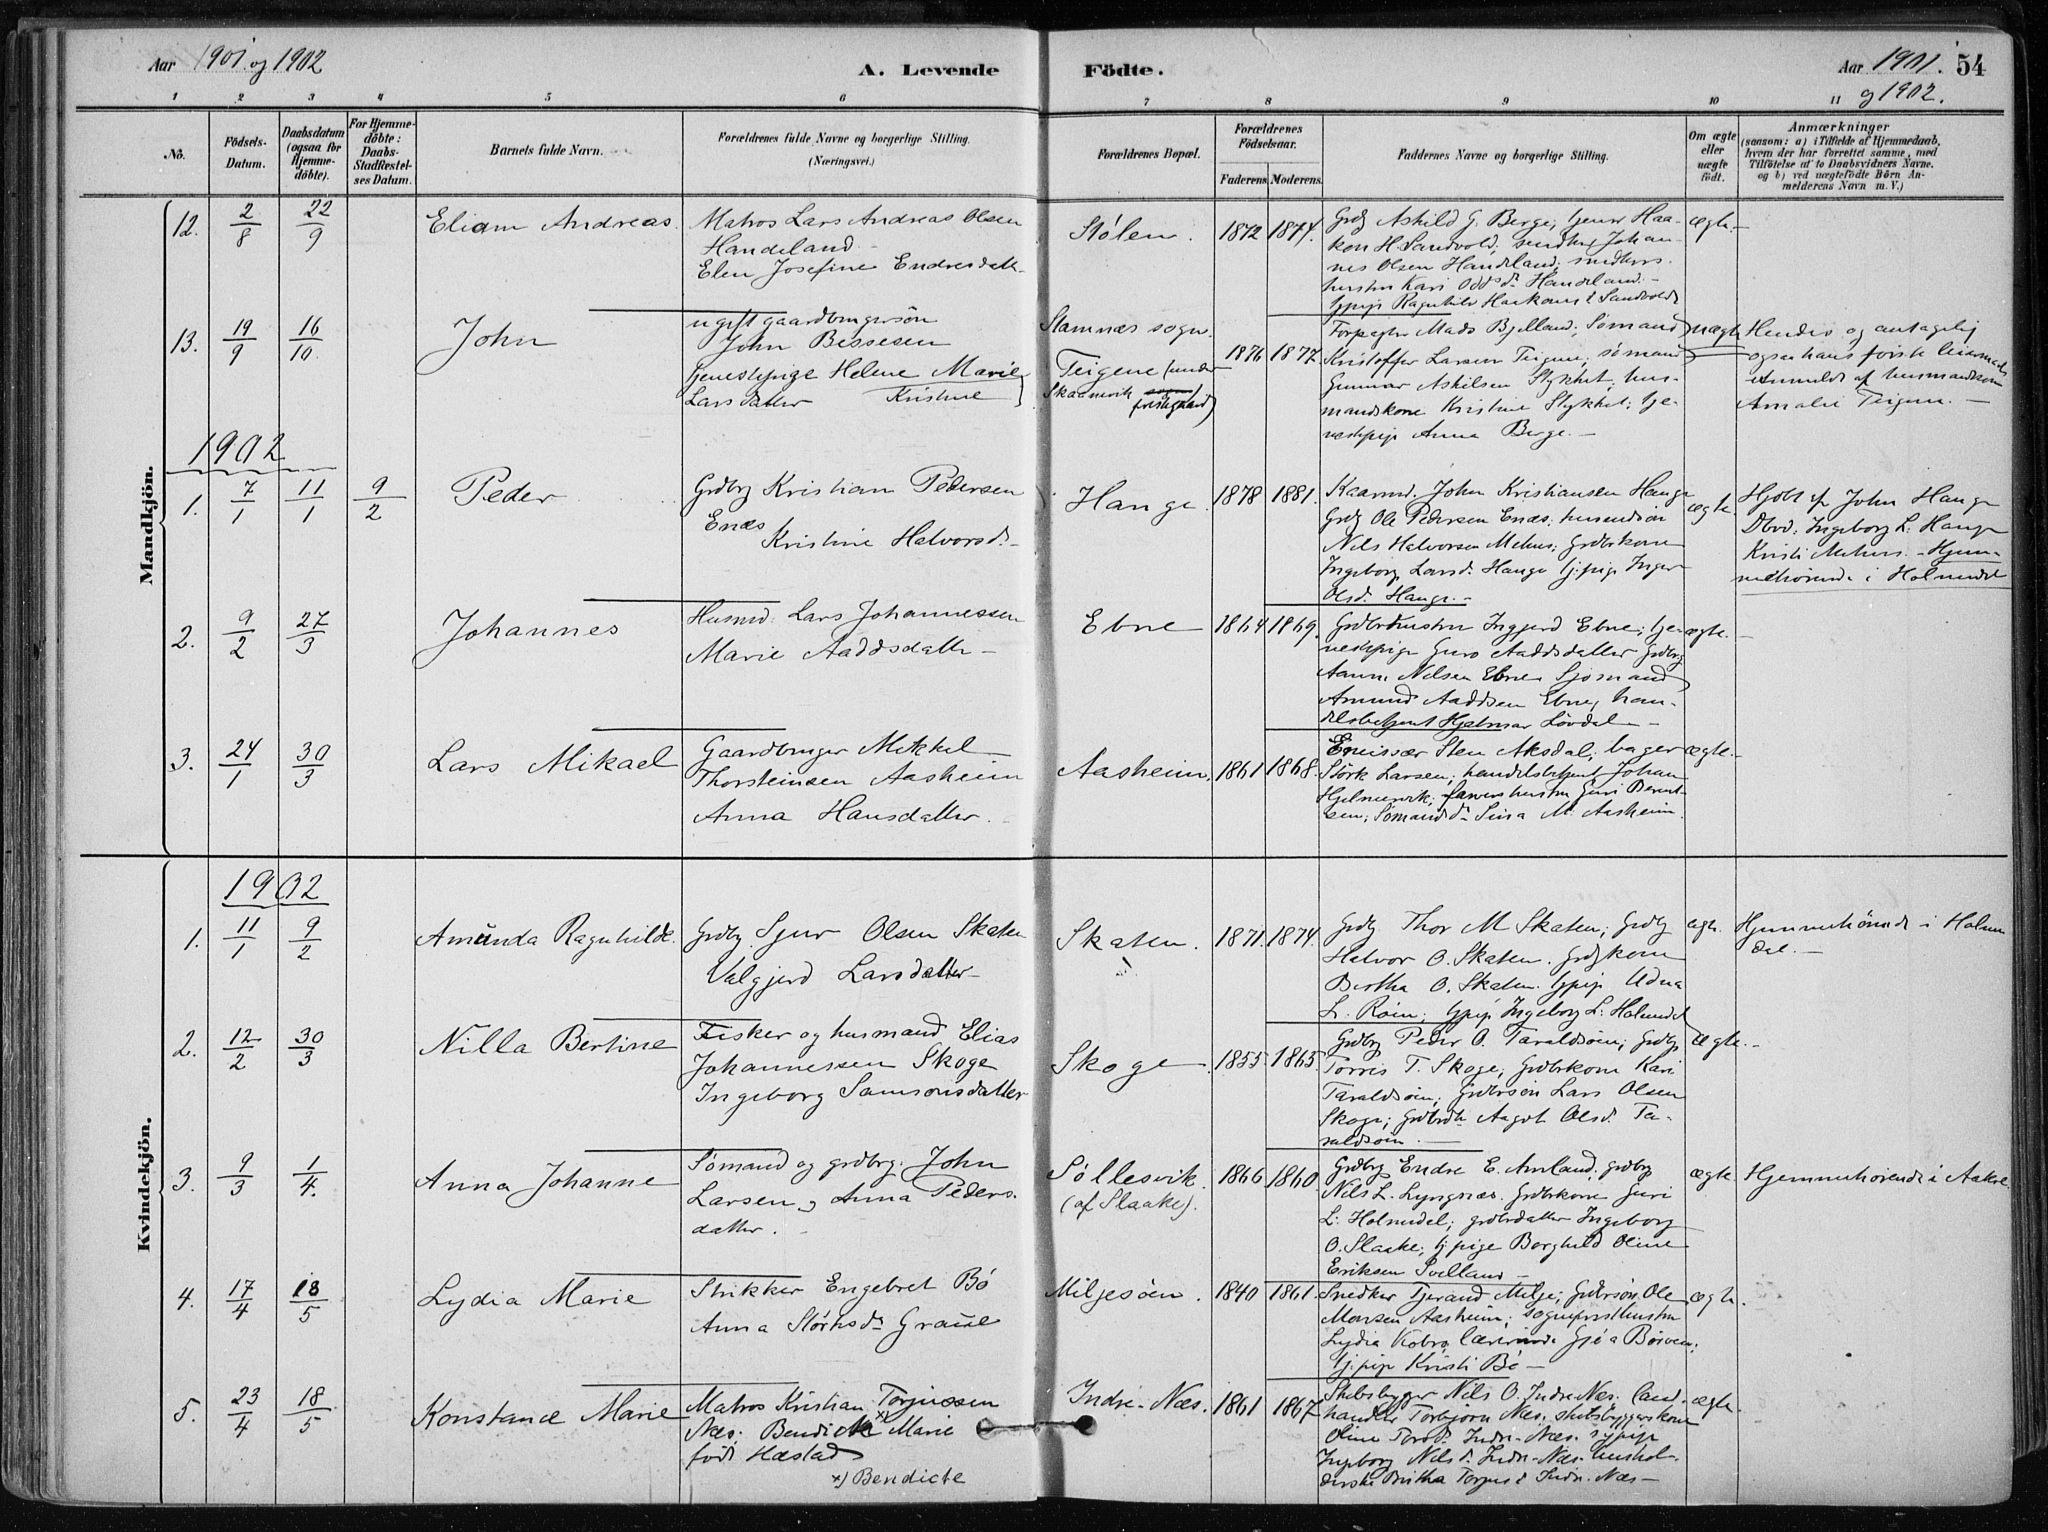 Aar 1901 og 1902
A. Levende
Födte.
Aar 1901. 54
og 1902.
1 2 3 4 5 6 7 8 9 10 11
No.
Födsels-
Datum.
Daabsdatum
(ogsaa for
Hjemme-
döbte).
For Hjemme-
döbte:
Daabs-
Stadfæstel-
ses Datum.
Barnets fulde Navn.
Forældrenes fulde Navne og borgerlige Stilling.
(Næringsvei.)
Forældrenes Bopæl.
Forældrenes
Födselsaar.
Faderens. Moderens.
Faddernes Navne og borgerlige Stilling.
Om ægte
eller
uægte
födt.
Anmærkninger
(saasom: a) i Tilfælde af Hjemmedaab,
hvem der har forrettet samme, med
Tilföielse af to Daabsvidners Navne.
og b) ved uægtefödte Börn An-
melderens Navn m. V.)
Mandkjön.
12.
2/8
22/9
Eliam Andreas.
Matros Lars Andreas Olsen
Handeland
Elen Josefine Endresdatt.
Stølen.
1872
1874.
Grdbr Askild G. Berge, tjener Haa-
kon H. Sandvold, smedbr Johan-
nes Olsen Handeland, smedkers
hustru Kari Oddsd. Handeland.
tjpige Ragnhild Haakons d Sandvold
ægte.
13.
19/9
16/10
John
ugift gaardbrugersøn
John Bessesen
Tjenestepige Helene Marie
Larsdatter Kristine
Stamnæs sogn.
Teigene (under
Skaanevik sogn
prestegjeld)
1876
1877.
Forpagter Mads Bjelland; Sømand
Kristoffer Larsen Teigene; sømand
Gunnar Askilsen Stykket; hus-
mandskone Kristine Stykket; tje-
nestepige Anna Berge.
uægte
Hendes og antagelig
ogsaa hans første leiermaal
Anmeldt af husmandskone
Amalie Teigene.
1902
1.
7/1
11/1
9/2
Peder
Grdbr Kristian Pedersen
Enæs
Kristine Halvorsd.
Hauge
1878
1881.
Kaarmd. John Kristiansen Hauge
Grdbr Ole Pedersen Enæs;
Nils Halvorsen Mehus; Grdbrkone
Ingeborg Larsd. Hauge tj.pige Inger
Olsd. Hauge.
ægte.
Hjdbt af John Hauge
Dbvd. Ingeborg L. Hauge
Kristi Mehus. Hjem-
mehørende i Holmedal
2.
9/2
27/3
Johannes
Husmd. Lars Johannessen
Marie Aaddsdatter
Ebne
1864
1869.
Grdbrhustru Inggjerd Ebne; tje-
nestepige Guro Aaddsdatter Grdbrg.
Aamu Nilsen Ebne Sjømand
Amund Aaddsen Ebne, han-
delsbetjent Hjalmar Løvdal
ægte.
3.
24/1
30/3
Lars Mikael
Gaardbruger Mikkel
Thorsteinsen Aasheim
Anna Hansdatter.
Aasheim.
1861
1868.
Emissær Sten Aksdal; bager
Størk Larsen; handelsbetjent Johan
Hjelmervik; farvershustru Guri Bernt-
sen; Sømandsd. Sina M. Aasheim.
ægte.
Kvindekjön.
1902
1.
11/1
9/2
Amunda Ragnhilde.
Grdbr. Sjur Olsen Skaten
Valgjerd Larsdatter
Skaten.
1871.
1874.
Grdbr Thor M Skaten; Grdbr
Halvor O. Skaten. Grdbrkone
Bertha O. Skaten. tjpige Udna
L. Røin; tjpige Ingeborg L. Holmedal
ægte.
Hjemmehørende i Holme
dal.
2.
12/2
30/3
Nilla Bertine
Fisker og husmand Elias
Johannessen Skoge
Ingeborg Samsonsdatter
Skoge
1855.
1863.
Grdbrg Peder O. Taraldsøin; Grdbrg
Torris T. Skoge; Grdbrkone Kari
Taraldsøin; Grdbrsøn Lars Olsen
Skoge; Grdbrdtr Aagot Olsd. Ta-
raldsøin.
Ægte.
3.
9/3
1/4.
Anna Johanne
Sømand og grdbrg. John
Larsen og Anna Peders.
datter.
Søllesvik.
(af Slaake).
1866
1860.
Grdbrg Endre E. Amland; grdbrg
Nils L. Lyngnæs. Grdbrkone Guri
L. Holmedal; grdbrdatter Ingeborg
O. Slaake; tj.pige Borghild Oline
Eriksen Svelland
ægte.
Hjemmehørende i Aakre.
4.
17/4
18/5
Lydia Marie
Strikker Engebret Bø
Anna Størksd. Graue
Miljesøen.
1840
1861.
Snedker Tjerand Milje; Grdbrsøn Ole
Monsen Aasheim; sogneprest hustru
Lydia Kobro, lærerinde Gjøa Børven;
tj.pige Kristi Bø
ægte.
5.
23/4
18/5
Konstance Marie
Matros Kristian Torjussen
Næs; Bendicte x) Marie
født Hæstad
x) Bendicte
Indre-Næs.
1861
1867.
Skibsbygger Nils O. Indre-Næs. land-
handler Torbjørn Næs. skibsbyggerskone
Oline Tordd. Indre-Næs. sypige
Ingeborg Nilsd. Indre-Næs.
Britha Torjus d Indre-Næs
ægte.